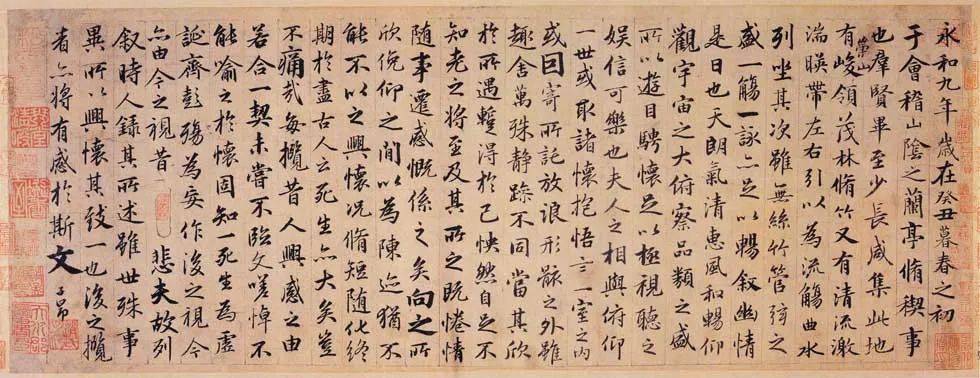 永和九年歲在癸丑暮春之初
于會稽山陰之蘭亭脩稧事
也羣賢畢至少長咸集此地
有崇山峻領茂林脩竹又有清流激
湍暎帶左右引以為流觴曲水
列坐其次雖無絲竹管弦之
盛一觴一詠亦足以暢敘幽情
是日也天朗氣清惠風和暢仰
觀宇宙之大俯察品類之盛
所以遊目騁懷足以極視聽之
娛信可樂也夫人之相與俯仰
一世或取諸懷抱悟言一室之內
或因寄所託放浪形骸之外雖
趣舍萬殊静躁不同當其欣
於所遇蹔得於己怏然自足不
知老之將至及其所之既惓情
隨事遷感慨係之矣向之所
欣俛仰之間以為陳迹猶不
能不以之興懷況脩短隨化終
期於盡古人云死生亦大矣豈
不痛哉每攬昔人興感之由
若合一契未嘗不臨文嗟悼不
能喻之於懷固知一死生為虛
誕齊彭殤為妄作後之視今
亦由今之視昔悲夫故列
敘時人錄其所述雖世殊事
異所以興懷其致一也後之攬
者亦將有感於斯文 子昂